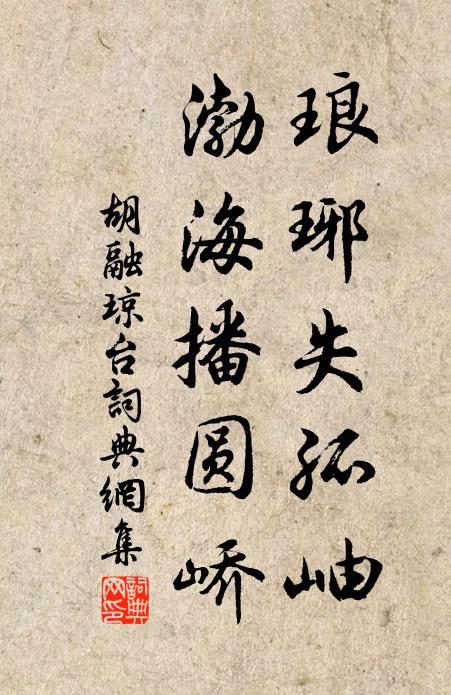 琅琊失孤岫
渤海播圆峤
胡融琼台詞典網集
詞典